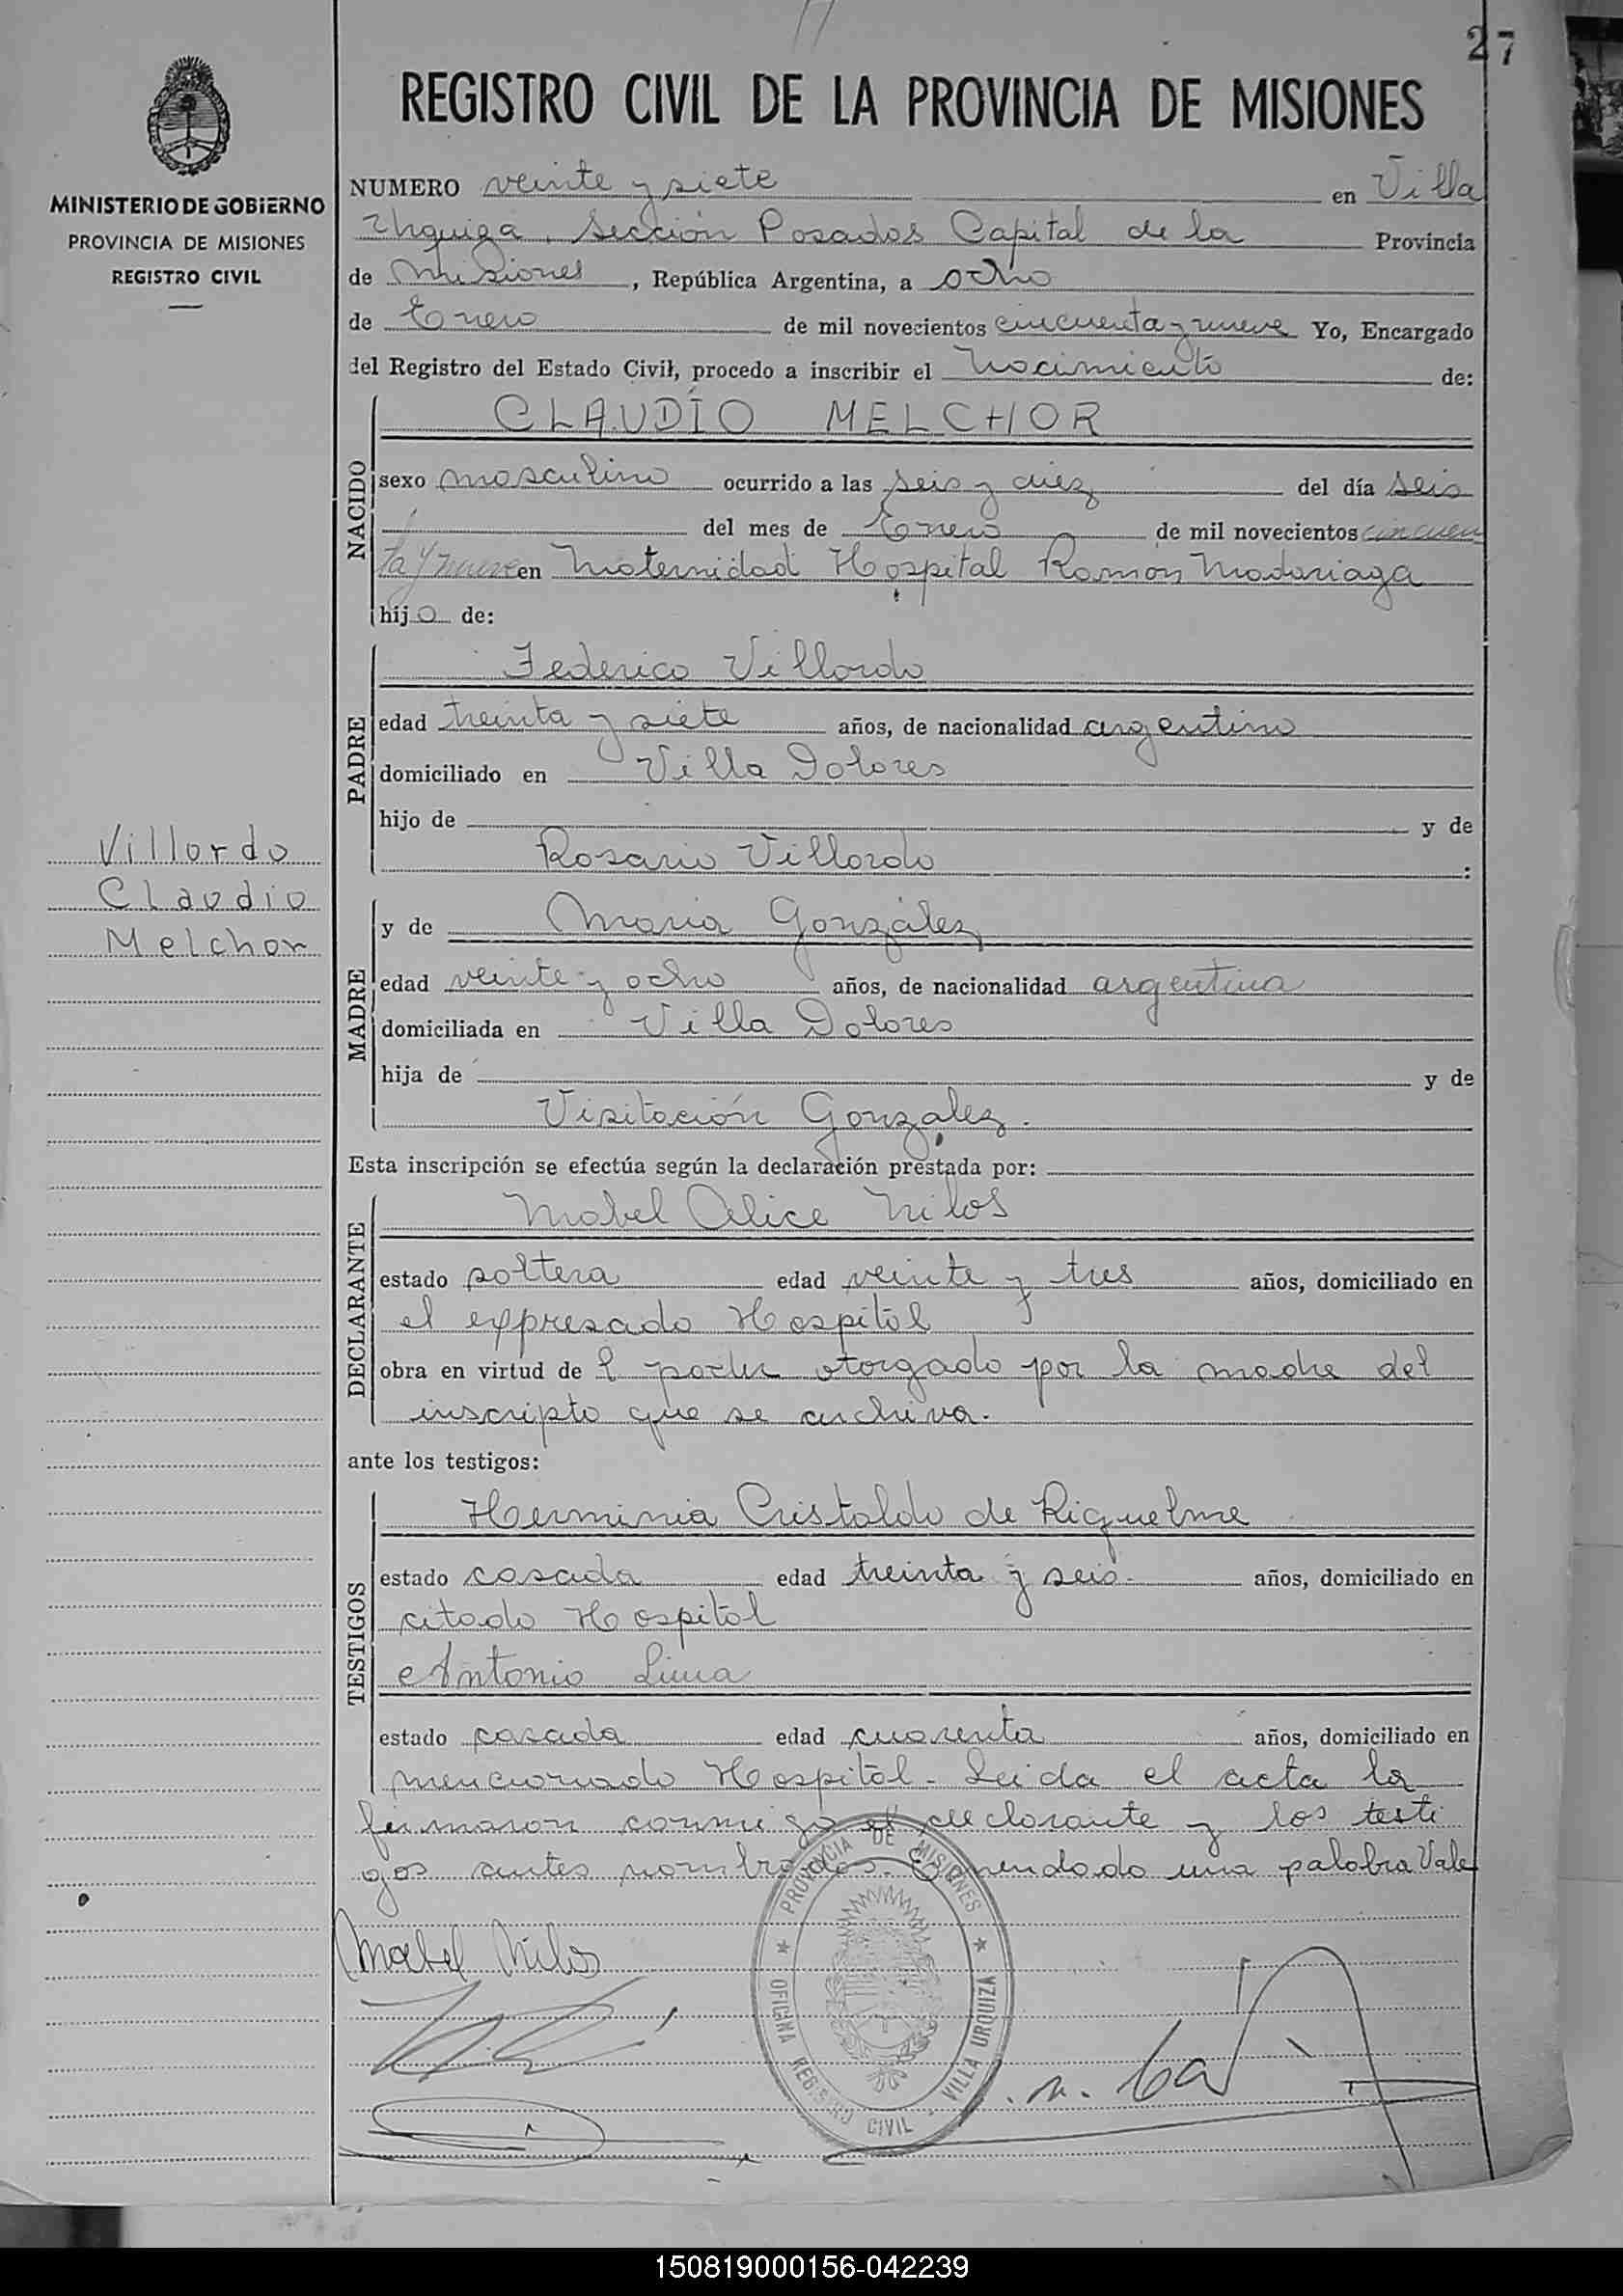 27
REGISTRO CIVIL DE LA PROVINCIA DE MISIONES
MINISTERIO DE GOBIERNO
PROVINCIA DE MISIONES
REGISTRO CIVIL
NUMERO veinte y siete en Villa
Urquiza, Sección Posadas Capital de la Provincia
de Misiones, República Argentina, a ocho
de Enero de mil novecientos cincuenta y nueve Yo, Encargado
del Registro del Estado Civil, procedo a inscribir el Nacimiento de:
CLAUDIO MELCHOR
NACIDO
sexo masculino ocurrido a las seis y diez del día seis
del mes de Enero de mil novecientos cincuen
ta y nueve en Maternidad Hospital Ramon Madariaga
hijo de:
Federico Villordo
PADRE
edad treinta y siete años, de nacionalidad argentino
domiciliado en Villa Dolores
hijo de y de
Rosario Villordo :
Villordo
Claudio
Melchor
y de Maria González
MADRE
edad veinte y ocho años, de nacionalidad argentina
domiciliada en Villa Dolores
hija de y de
Visitación González.
Esta inscripción se efectúa según la declaración prestada por:
Mabel Alice Milos
DECLARANTE
estado soltera edad veinte y tres años, domiciliado en
el expresado Hospital
obra en virtud de l poder otorgado por la madre del
inscripto que se archiva.
ante los testigos:
Herminia Cristaldo de Riquelme
TESTIGOS
estado casada edad treinta y seis años, domiciliado en
citado Hospital
Antonio Lima
estado casada edad cuarenta años, domiciliado en
mencionado Hospital - Leida el acta la
firmaron conmigo el declarante y los testi
gos antes nombrados. Enmendado una palabra Vale
Mabel Milos
PROVINCIA DE MISIONES
OFICINA REGISTRO CIVIL - VILLA URQUIZA
150819000156-042239